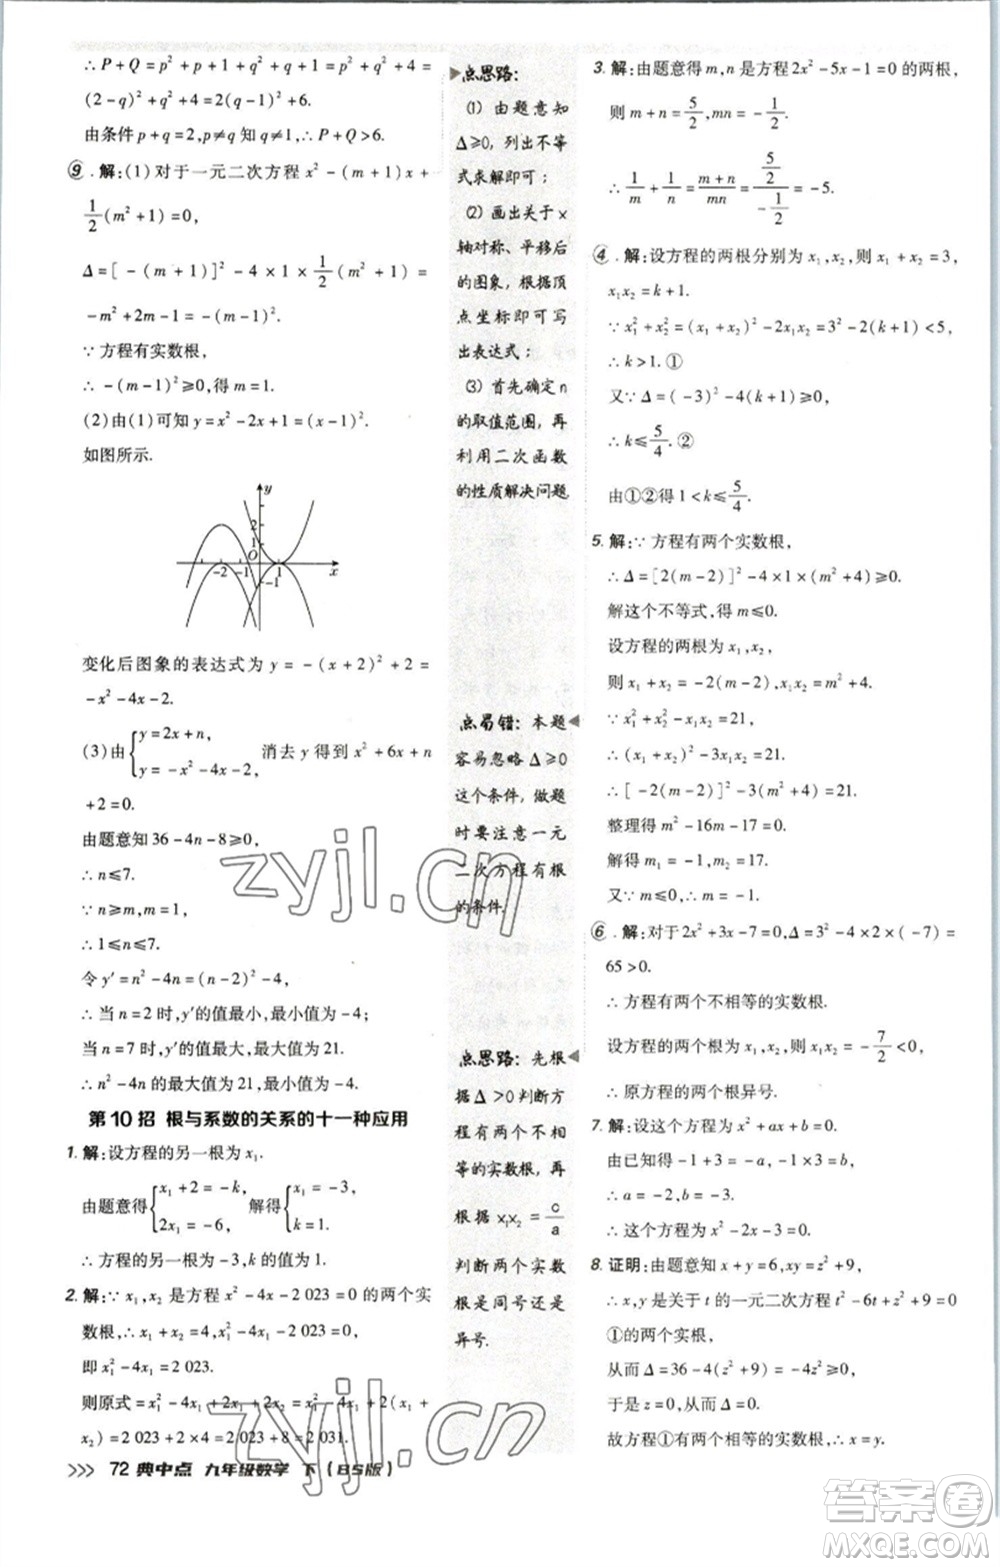 ∴ P+Q=p²+p²+q²+q²+4=
(2-q)²+q²+4=2(q-1)²+6.
由条件 p+q=2,p≠q 知 q≠1,∴ P+Q>6.
9. 解:(1)对于一元二次方程 x²-(m+1)x+
1/2(m²+1)=0,
Δ=[-(m+1)]²-4×1×1/2(m²+1)=
-m²+2m-1=-(m-1)².
∵ 方程有实数根,
∴ -(m-1)²≥0,得 m=1.
(2)由(1)可知 y=x²-2x+1=(x-1)².
如图所示.
y
2
1
-2
O
-1
1
x
变化后图象的表达式为 y=-(x+2)²+2=
-x²-4x-2.
(3)由{y=2x+n, y=-x²-4x-2, 消去 y 得到 x²+6x+n
+2=0.
由题意知 36-4n-8≥0,
∴ n≤7.
∵ n≥m,m=1,
∴ 1≤n≤7.
令 y′=n²-4n=(n-2)²-4,
∴ 当 n=2 时,y′的值最小,最小值为-4,
当 n=7 时,y′的值最大,最大值为 21.
∴ n²-4n 的最大值为 21,最小值为-4.
第10招 根与系数的关系的十一种应用
1. 解:设方程的另一根为 x₁.
由题意得{x₁+2=-k, 2x₁=-6, 解得{x₁=-3, k=1.
∴ 方程的另一根为-3,k 的值为 1.
2. 解:∵ x₁,x₂ 是方程 x²-4x-2 023=0 的两个实
数根,∴ x₁+x₂=4,x₁²-4x₁-2 023=0,
即 x₁²-4x₁=2 023.
则原式=x₁²-4x₁+2x₁+2x₂=x₁²-4x₁+2(x₁+
x₂)=2 023+2×4=2 023+8=2 031.
>>> 72 典中点 九年级数学 下(BS版)
点思路:
(1) 由题意知
Δ≥0,列出不等
式求解即可;
(2) 画出关于 x
轴对称、平移后
的图象,根据顶
点坐标即可写
出表达式;
(3) 首先确定 n
的取值范围,再
利用二次函数
的性质解决问题.
点易错:本题
容易忽略 Δ≥0
这个条件,做题
时要注意一元
二次方程有根
的条件.
点思路:先根
据 Δ>0 判断方
程有两个不相
等的实数根,再
根据 x₁x₂=c/a
判断两个实数
根是同号还是
异号.
3. 解:由题意得 m,n 是方程 2x²-5x-1=0 的两根,
则 m+n=5/2,mn=-1/2.
∴ 1/m+1/n=(m+n)/mn=(5/2)/(-1/2)=-5.
4. 解:设方程的两根分别为 x₁,x₂,则 x₁+x₂=3,
x₁x₂=k+1.
∵ x₁²+x₂²=(x₁+x₂)²-2x₁x₂=3²-2(k+1)<5,
∴ k>1.①
又∵ Δ=(-3)²-4(k+1)≥0,
∴ k≤5/4.②
由①②得 1<k≤5/4.
5. 解:∵ 方程有两个实数根,
∴ Δ=[2(m-2)]²-4×1×(m²+4)≥0.
解这个不等式,得 m≤0.
设方程的两根为 x₁,x₂,
则 x₁+x₂=-2(m-2),x₁x₂=m²+4.
∵ x₁²+x₂²-x₁x₂=21,
∴ (x₁+x₂)²-3x₁x₂=21.
∴ [-2(m-2)]²-3(m²+4)=21.
整理得 m²-16m-17=0.
解得 m₁=-1,m₂=17.
又∵ m≤0,∴ m=-1.
6. 解:对于2x²+3x-7=0,Δ=3²-4×2×(-7)=
65>0.
∴ 方程有两个不相等的实数根.
设方程的两个根为 x₁,x₂,∵ x₁x₂=-7/2<0,
∴ 原方程的两个根异号.
7. 解:设这个方程为 x²+ax+b=0.
由已知得-1+3=-a,-1×3=b.
∴ a=-2,b=-3.
∴ 这个方程为 x²-2x-3=0.
8. 证明:由题意知 x+y=6,xy=z²+9,
∴ x,y 是关于 t 的一元二次方程 t²-6t+z²+9=0
①的两个实根.
从而 Δ=36-4(z²+9)=-4z²≥0.
于是 z=0,从而 Δ=0.
故方程①有两个相等的实数根,∴ x=y.
zyjl.cn
zyjl.cn
答案圈
MXQE.COM